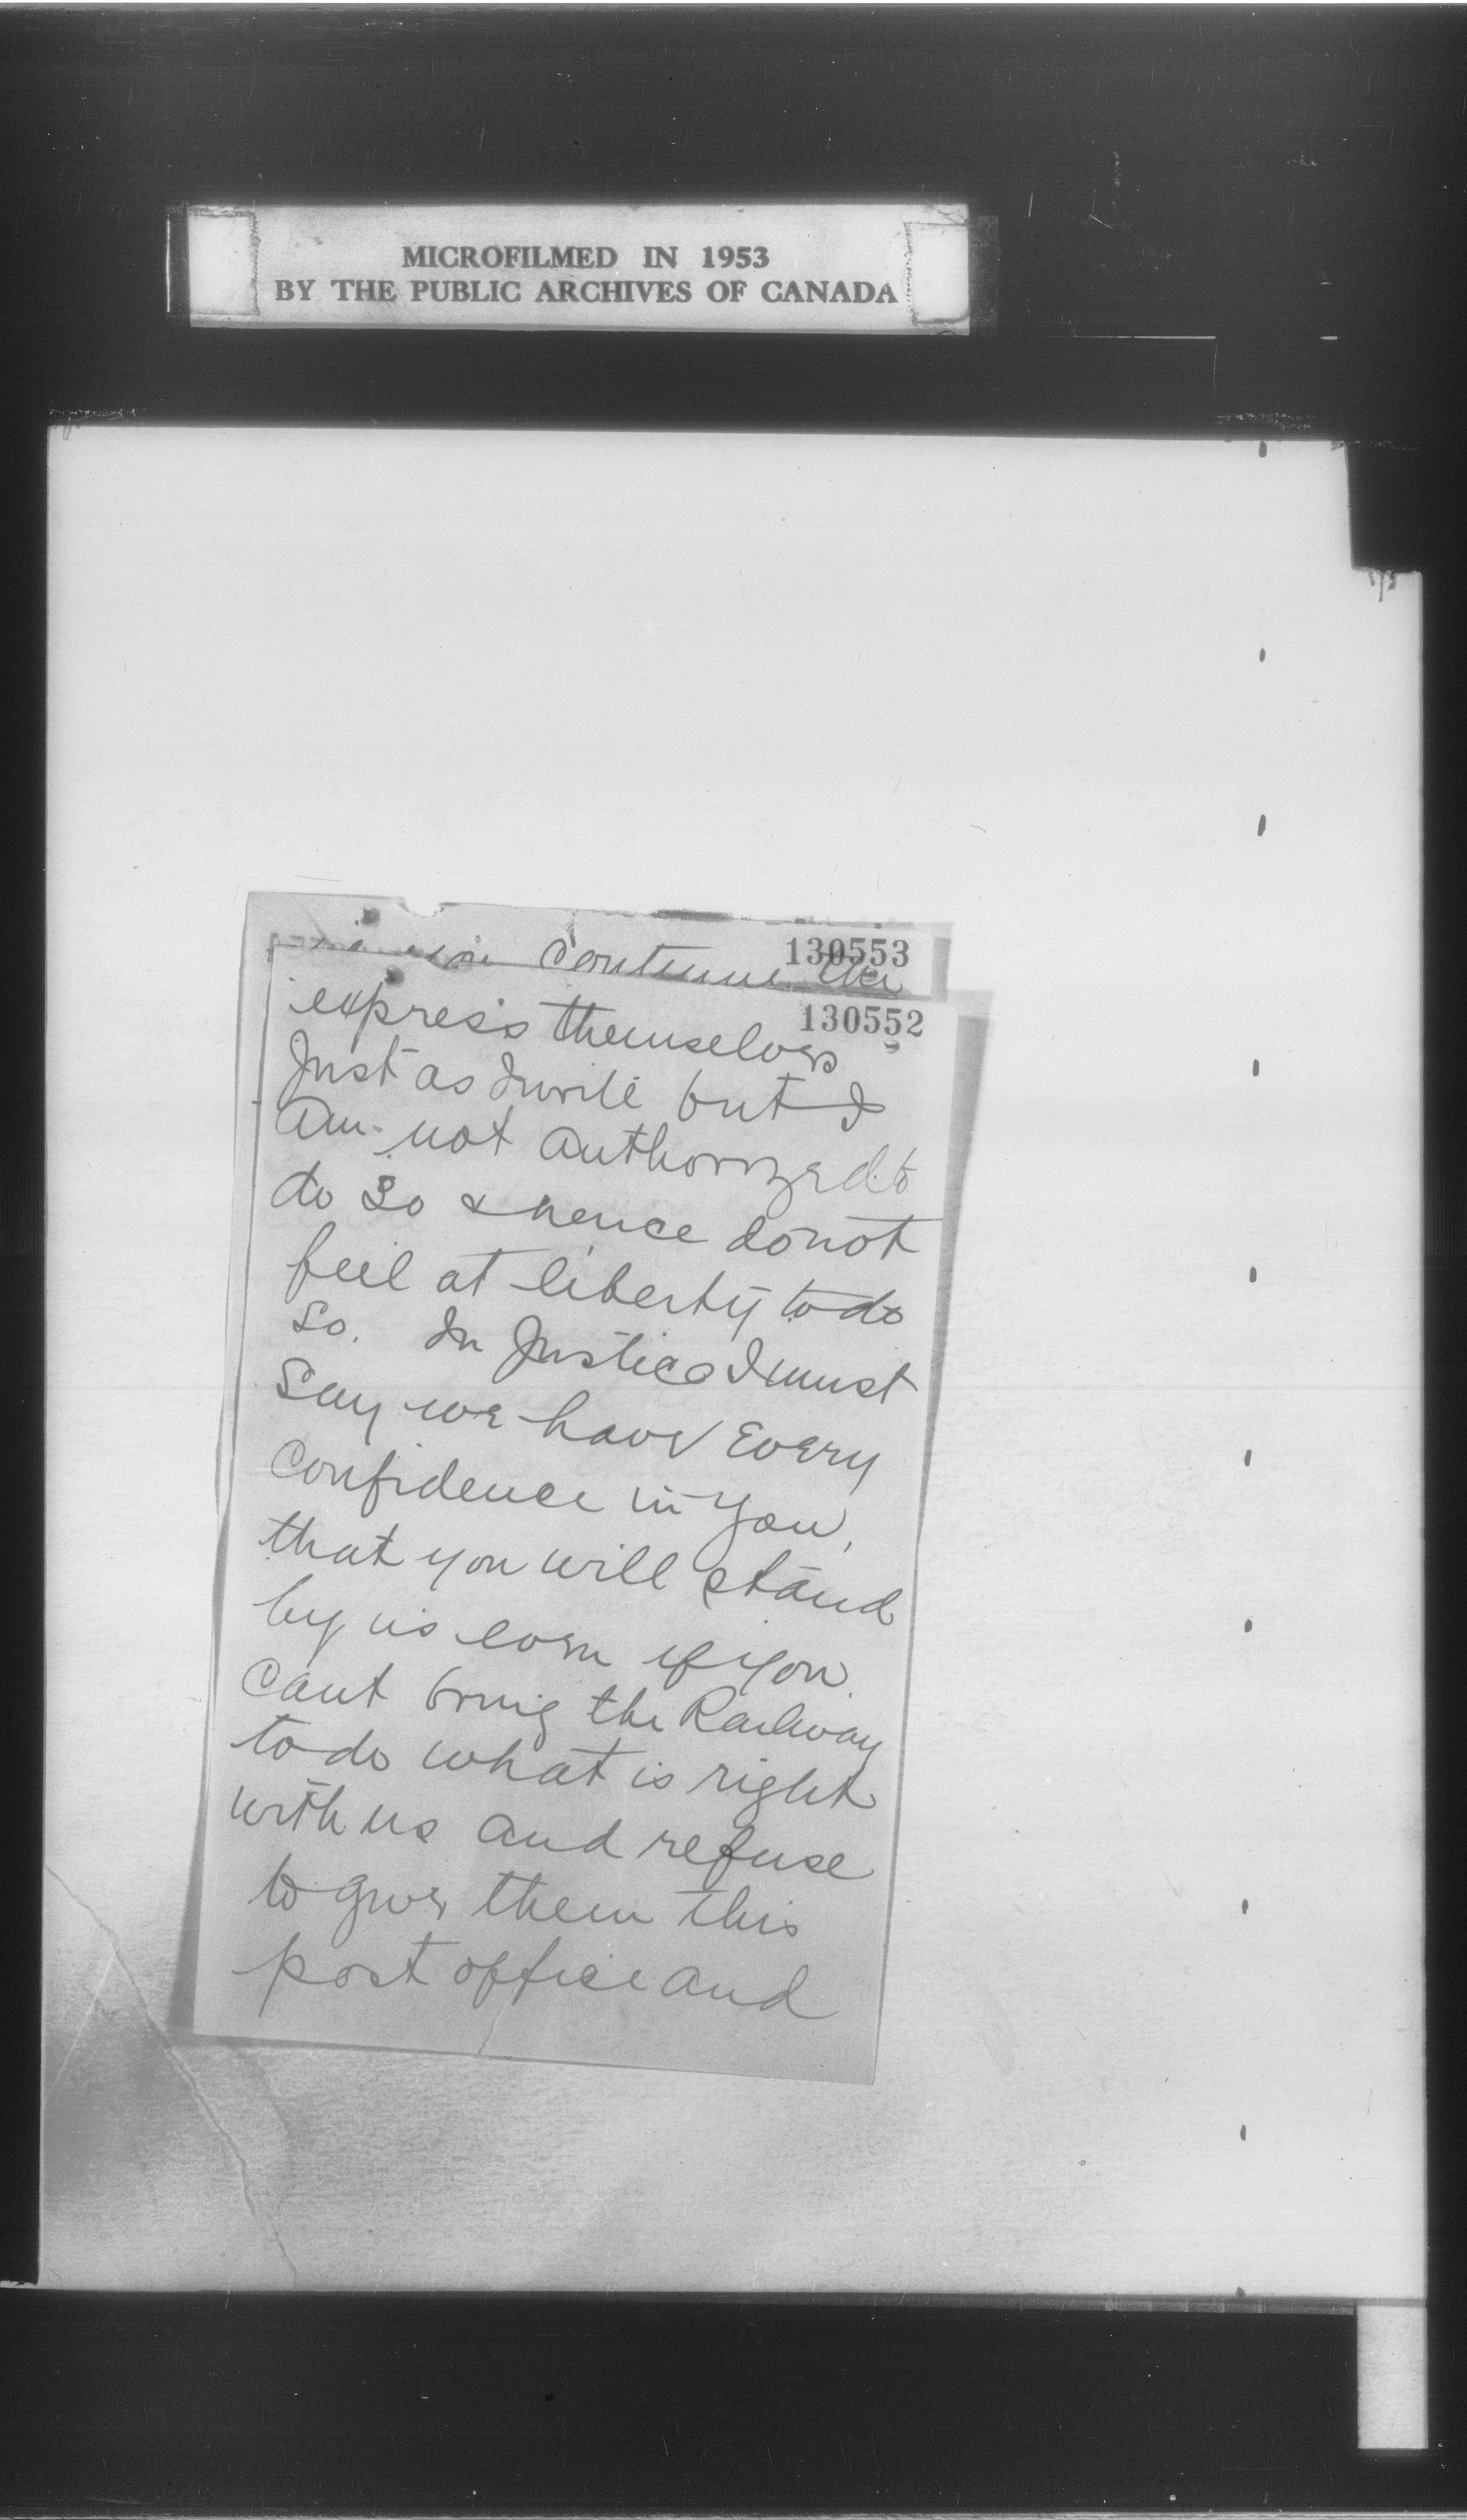 MICROFILMED IN 1953
BY THE PUBLIC ARCHIVES OF CANADA
130553
continue the
130552
express themselves
Just as I write but I
am not authorized to
do so & hence do not
feel at liberty to do
so. In Justice I must
say we have every
confidence in you,
that you will stand
by us even if you
cant bring the Railway
to do what is right
with us and refuse
to give them this
post office and